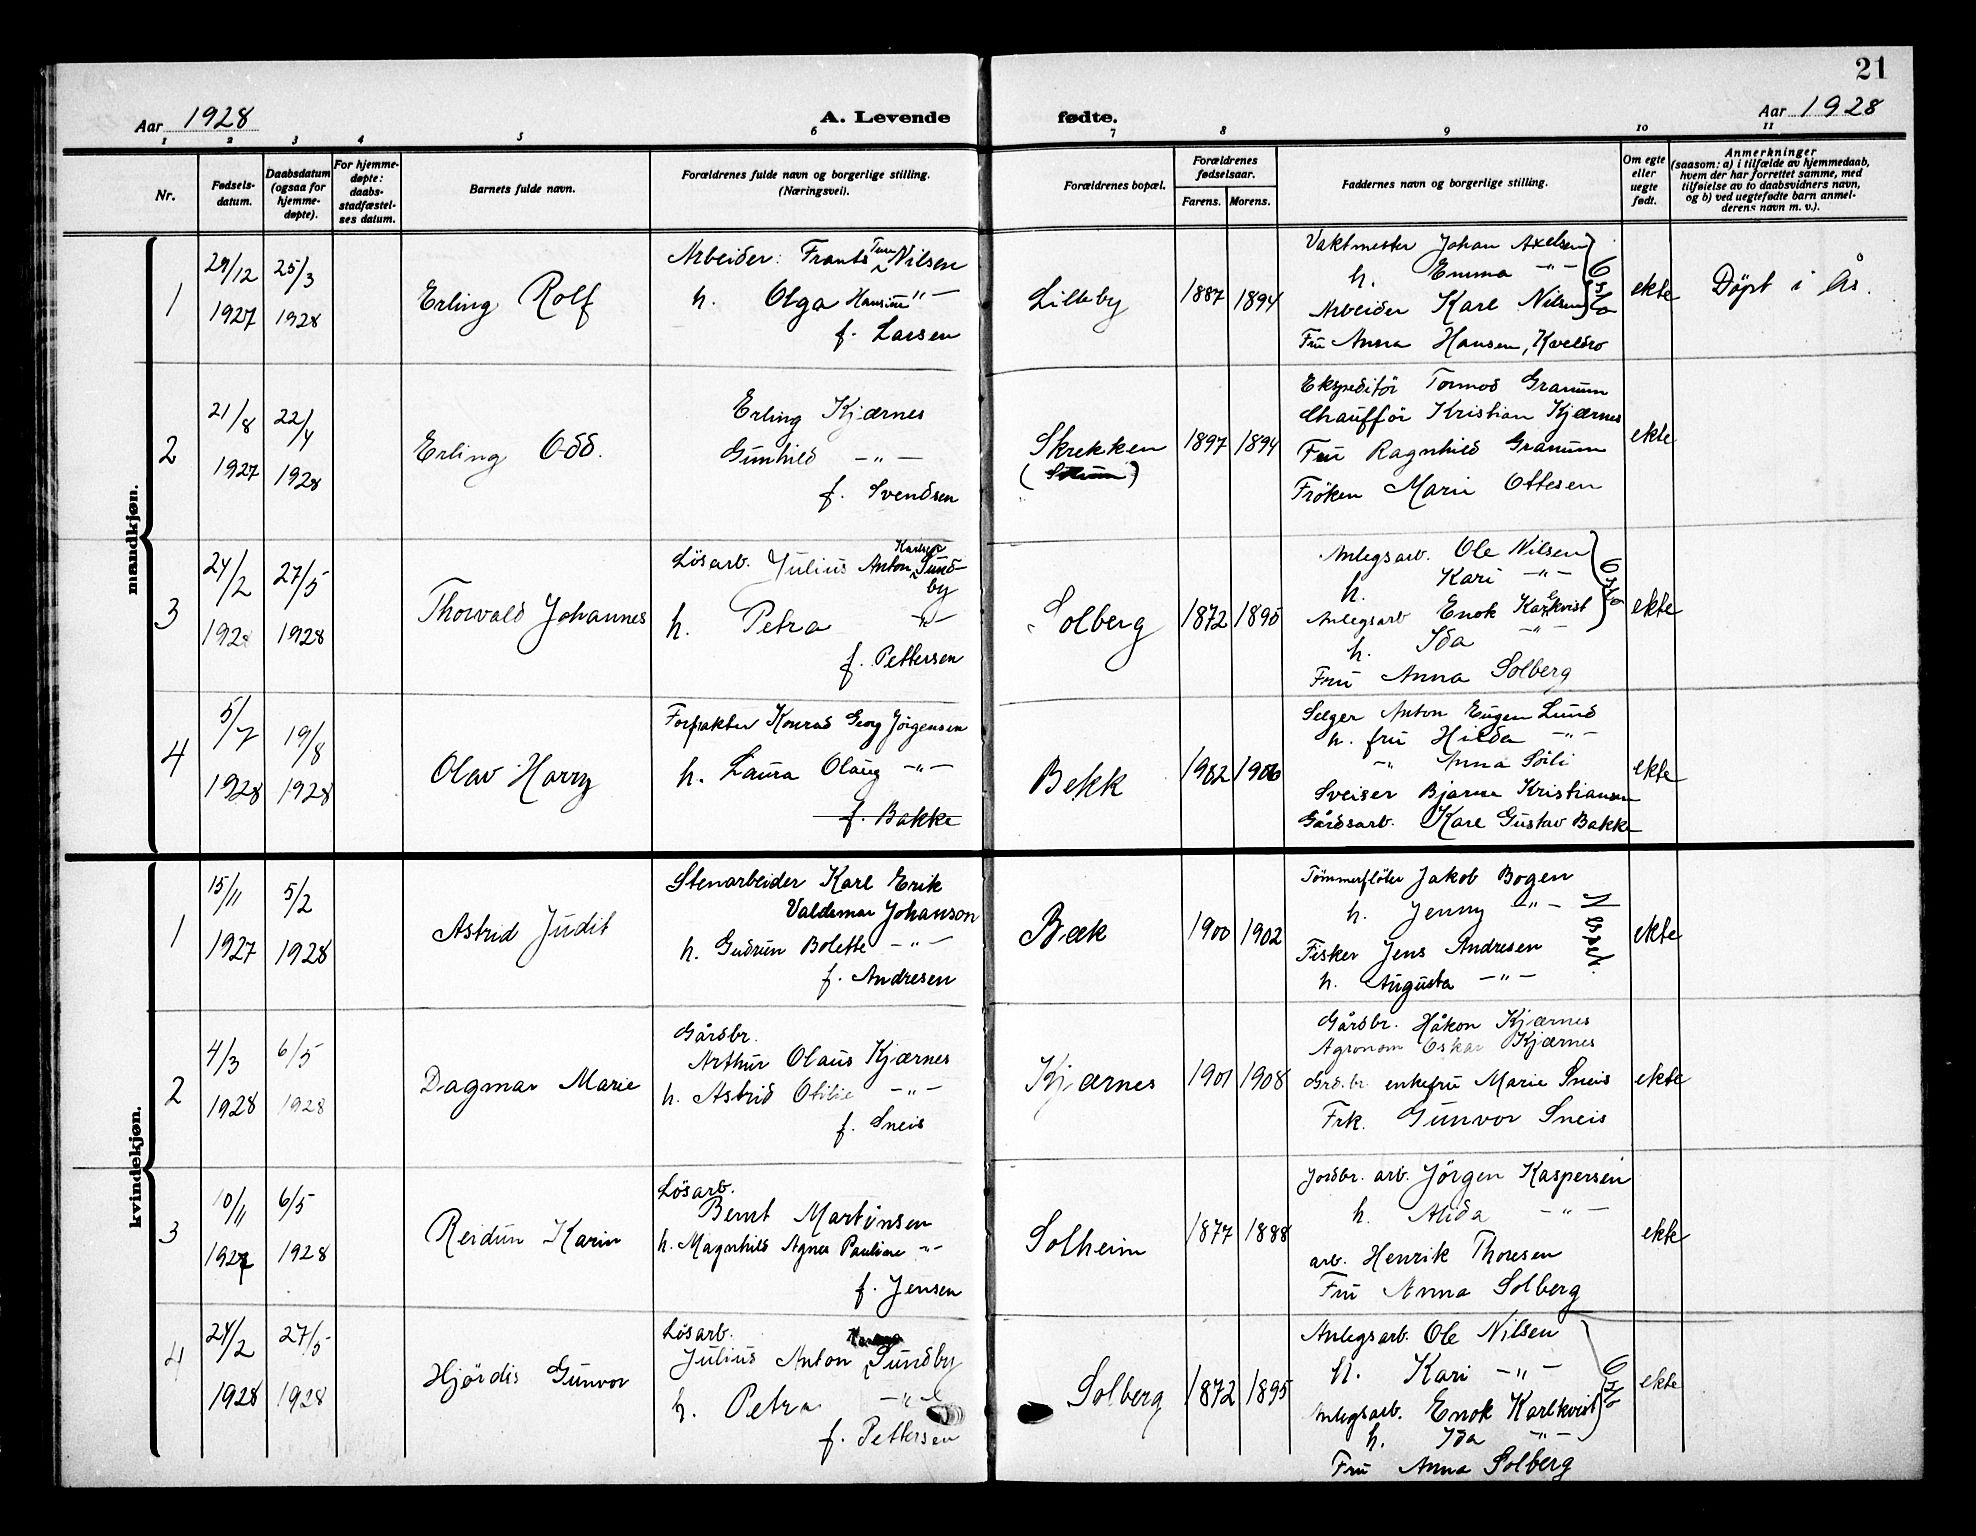 21
Aar 1928
A. Levende
fødte.
Aar 1928
1 2 3 4 5 6 7 8 9 10 11
Nr.
Fødsels-
datum.
Daabsdatum
(ogsaa for
hjemme-
døpte).
For hjemme-
døpte:
daabs-
stadfæstel-
ses datum.
Barnets fulde navn.
Forældrenes fulde navn og borgerlige stilling.
(Næringsvei).
Forældrenes bopæl.
Forældrenes
fødselsaar.
Farens. Morens.
Faddernes navn og borgerlige stilling.
Om egte
eller
uegte
født.
Anmerkninger
(saasom: a) i tilfælde av hjemmedaab,
hvem der har forrettet samme, med
tilføielse av to daabsvidners navn,
og b) ved uegtefødte barn anmel-
derens navn m. v.).
mandkjøn.
1
29/12
1927
25/3
1928
Erling Rolf
Arbeider: Frants Nilsen
h. Olga Hansine -"-
f. Larsen
Lilleby
1887 1894
Vaktmester Johan Axelsen
h. Emma -"-
Arbeider Karl Nilsen
Oslo
Fru Anna Hansen, Kveldro
ekte
Døpt i Ås.
2
21/8
1927
22/4
1928
Erling Odd.
Erling Kjærnes
Gunhild -"-
f. Svendsen
Skrekken
1897 1894
Ekspeditør Tormod Granum
Chauffør Kristian Kjærnes
Fru Ragnhild Granum
Frøken Marie Ottesen
ekte
3
24/2
1928
27/5
1928
Thorvald Johannes
Løsarb. Julius Anton Karlsen Sund-
by
h. Petra -"-
f. Pettersen
Solberg
1872 1895
Anlegsarb. Ole Nilsen
h. Kari -"-
Anlegsarb Enok Karlkvist
h. Ida -"-
Oslo
Fru Anna Solberg
ekte
4
5/7
1928
19/8
1928
Olav Harry
Forpakter Konrad Georg Jørgensen
h. Laura Olaug -"-
f. Bakke
Bekk
1902 1906
Selger Anton Eugen Lund
h. fru Hilda -"-
-"- Anna Søili
Sveiser Bjarne Kristiansen
Gårdsarb. Karl Gustav Bakke
ekte
kvindekjøn.
1
15/11
1927
5/2
1928
Astrid Judit
Stenarbeider Karl Erik
Valdemar Johanson
h. Gudrun Bolette -"-
f. Andresen
Bæk
1900 1902
Tømmerfløter Jakob Bogen
h. Jenny -"-
Fisker Jens Andresen
h. Augusta -"-
ekte
2
4/3
1928
6/5
1928
Dagmar Marie
Gårdbr.
Arthur Olaus Kjærnes
h. Astrid Otilie -"-
f. Sneis
Kjærnes
1901 1908
Gårdbr. Håkon Kjærnes
Agronom Oskar Kjærnes
Grd.br. enkefru Marie Sneis
Frk. Gunvor Sneis
ekte
3
10/11
1927
6/5
1928
Reidun Karin
Løsarb.
Bernt Martinsen
h. Magnhild Agnes Pauline -"-
f. Jensen
Solheim
1877 1888
Jordbr. arb. Jørgen Kaspersen
h. Alida -"-
arb. Henrik Thoresen
Fru Anna Solberg
ekte
4
24/2
1928
27/5
1928
Hjørdis Gunvor
Løsarb.
Julius Anton Sundby
h. Petra -"-
f. Pettersen
Solberg
1872 1895
Anlegsarb. Ole Nilsen
h. Kari -"-
Anlegsarb. Enok Karlkvist
h. Ida -"-
Oslo
Fru Anna Solberg
ekte